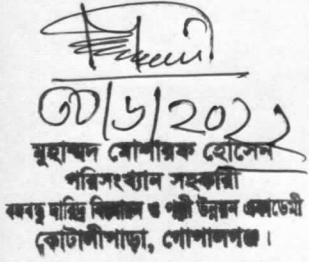 ৩০/৬/২০২২
মুহাম্মদ মোশারফ হোসেন
পরিসংখ্যান সহকারী
বঙ্গবন্ধু দারিদ্র্য বিমোচন ও পল্লী উন্নয়ন একাডেমী
কোটালীপাড়া, গোপালগঞ্জ।